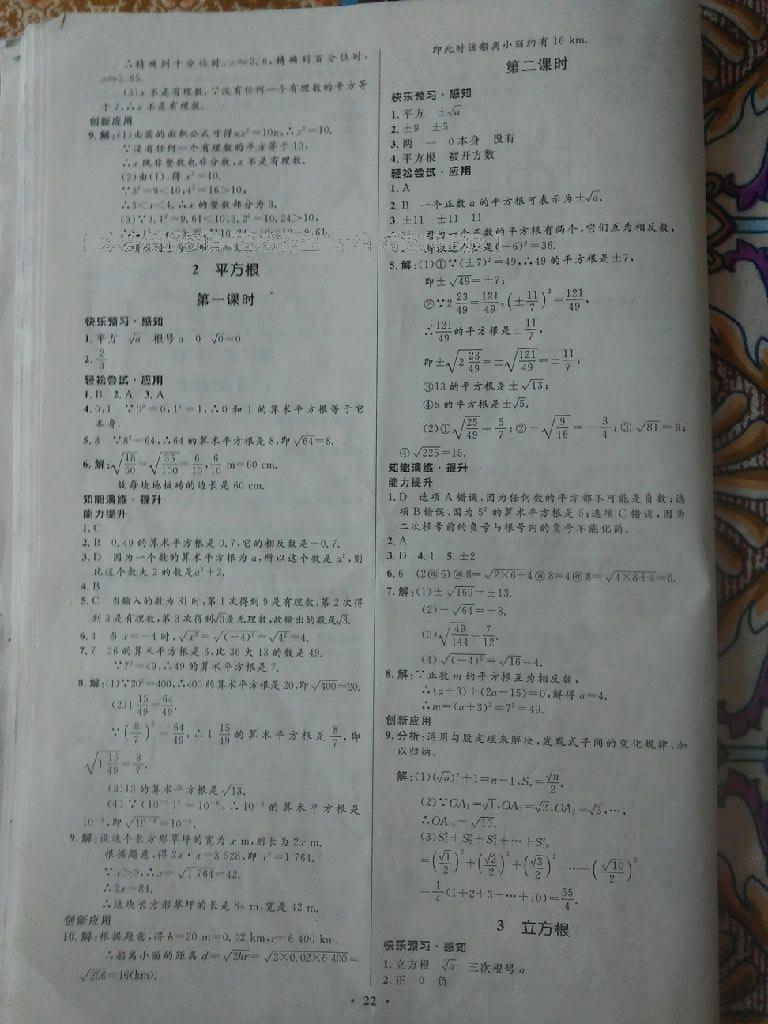 ∴精确到十分位时,x≈2.6,精确到百分位时,
x≈2.65.
(3)x不是有理数.∵没有任何一个有理数的平方等
于7,∴x不是有理数.
创新应用
9.解:(1)由圆的面积公式可得πx²=10π,∴x²=10.
∵没有任何一个有理数的平方等于10,
∴x既非整数也非分数,x不是有理数.
(2)由(1),得x²=10.
∵3²=9<10,4²=16>10,
∴3<x<4,∴x的整数部分为3.
(3)∵3.1²=9.61<10,3.2²=10.24>10,
2 平方根
第一课时
快乐预习·感知
1.平方 √a 根号a 0 √0=0
2.2/3
轻松尝试·应用
1.B 2.A 3.A
4.0,1 ∵0²=0,1²=1,∴0和1的算术平方根等于它
本身.
5.8 ∵8²=64,∴64的算术平方根是8,即√64=8.
6.解:√(18/50)=√(36/100)=6/10,6/10 m=60 cm.
故每块地板砖的边长是60 cm.
知能演练·提升
能力提升
1.C
2.B 0.49的算术平方根是0.7,它的相反数是-0.7.
3.D 因为一个数的算术平方根为a,所以这个数是a²,则
比这个数大2的数是a²+2.
4.B
5.C 当输入的数为81时,第1次得到9是有理数,第2次得
到3是有理数,第3次得到√3是无理数,故输出的数是√3.
6.4 当x=-4时,√x²=√(-4)²=√4²=4.
7.7 36的算术平方根是6,比36大13的数是49.
∵7²=49,∴49的算术平方根是7.
8.解:(1)∵20²=400,∴400的算术平方根是20,即√400=20.
(2)1 15/49=64/49.
∵(8/7)²=64/49,∴1 15/49的算术平方根是8/7,即
√(1 15/49)=8/7.
(3)13的算术平方根是√13.
(4)∵(10⁻³)²=10⁻⁶,∴10⁻⁶的算术平方根是
10⁻³,即√10⁻⁶=10⁻³.
9.解:设这个长方形草坪的宽为x m,则长为2x m.
根据题意,得2x·x=3 528,即x²=1 764.
∵x>0,∴x=√1 764=42.
∴2x=84.
∴这块长方形草坪的长是84 m,宽是42 m.
创新应用
10.解:根据题意,得h=20 m=0.02 km,r=6 400 km.
∴船离小丽的距离d=√2hr=√(2×0.02×6 400)=
√256=16(km).
即此时该船离小丽约有16 km.
第二课时
快乐预习·感知
1.平方 ±√a
2.±9 ±5
3.两 一 0本身 没有
4.平方根 被开方数
轻松尝试·应用
1.A
2.B 一个正数a的平方根可表示为±√a.
3.±11 ±11 11
因为一个正数的平方根有两个,它们互为相反数,
所以这个数是(-6)²=36.
5.解:(1)①∵(±7)²=49,∴49的平方根是±7,
即±√49=±7;
②∵2 23/49=121/49,(±11/7)²=121/49,
∴121/49的平方根是±11/7,
即±√(2 23/49)=±√(121/49)=±11/7;
③13的平方根是±√13;
④5的平方根是±√5.
(2)①√(25/49)=5/7;②-√(9/16)=-3/4;③√81=9;
④√225=15.
知能演练·提升
能力提升
1.D 选项A错误,因为任何数的平方都不可能是负数;选
项B错误,因为5²的算术平方根是5;选项C错误,因为
二次根号前的负号与根号内的负号不能化简.
2.A
3.D 4.1 5.±2
6.6 (2@6)@8=√(2×6+4)@8=4@8=√(4×8+4)=6.
7.解:(1)±√169=±13.
(2)-√64=-8.
(3)√(49/144)=7/12.
(4)√(-4)²=√16=4.
8.解:∵正数m的平方根互为相反数,
∴(a+3)+(2a-15)=0,解得a=4.
∴m=(a+3)²=7²=49.
创新应用
9.分析:运用勾股定理来解决,发现式子间的变化规律,加
以归纳.
解:(1)(√n)²+1=n+1,Sₙ=√n/2.
(2)∵OA₁=√1,OA₂=√2,OA₃=√3,…,
∴OA₁₀=√10.
(3)S₁²+S₂²+S₃²+…+S₁₀²
=(√1/2)²+(√2/2)²+(√3/2)²+…+(√10/2)²
=1/4(1+2+3+…+10)=55/4.
3 立方根
快乐预习·感知
1.立方根 ∛a 三次根号a
2.正 0 负
· 22 ·